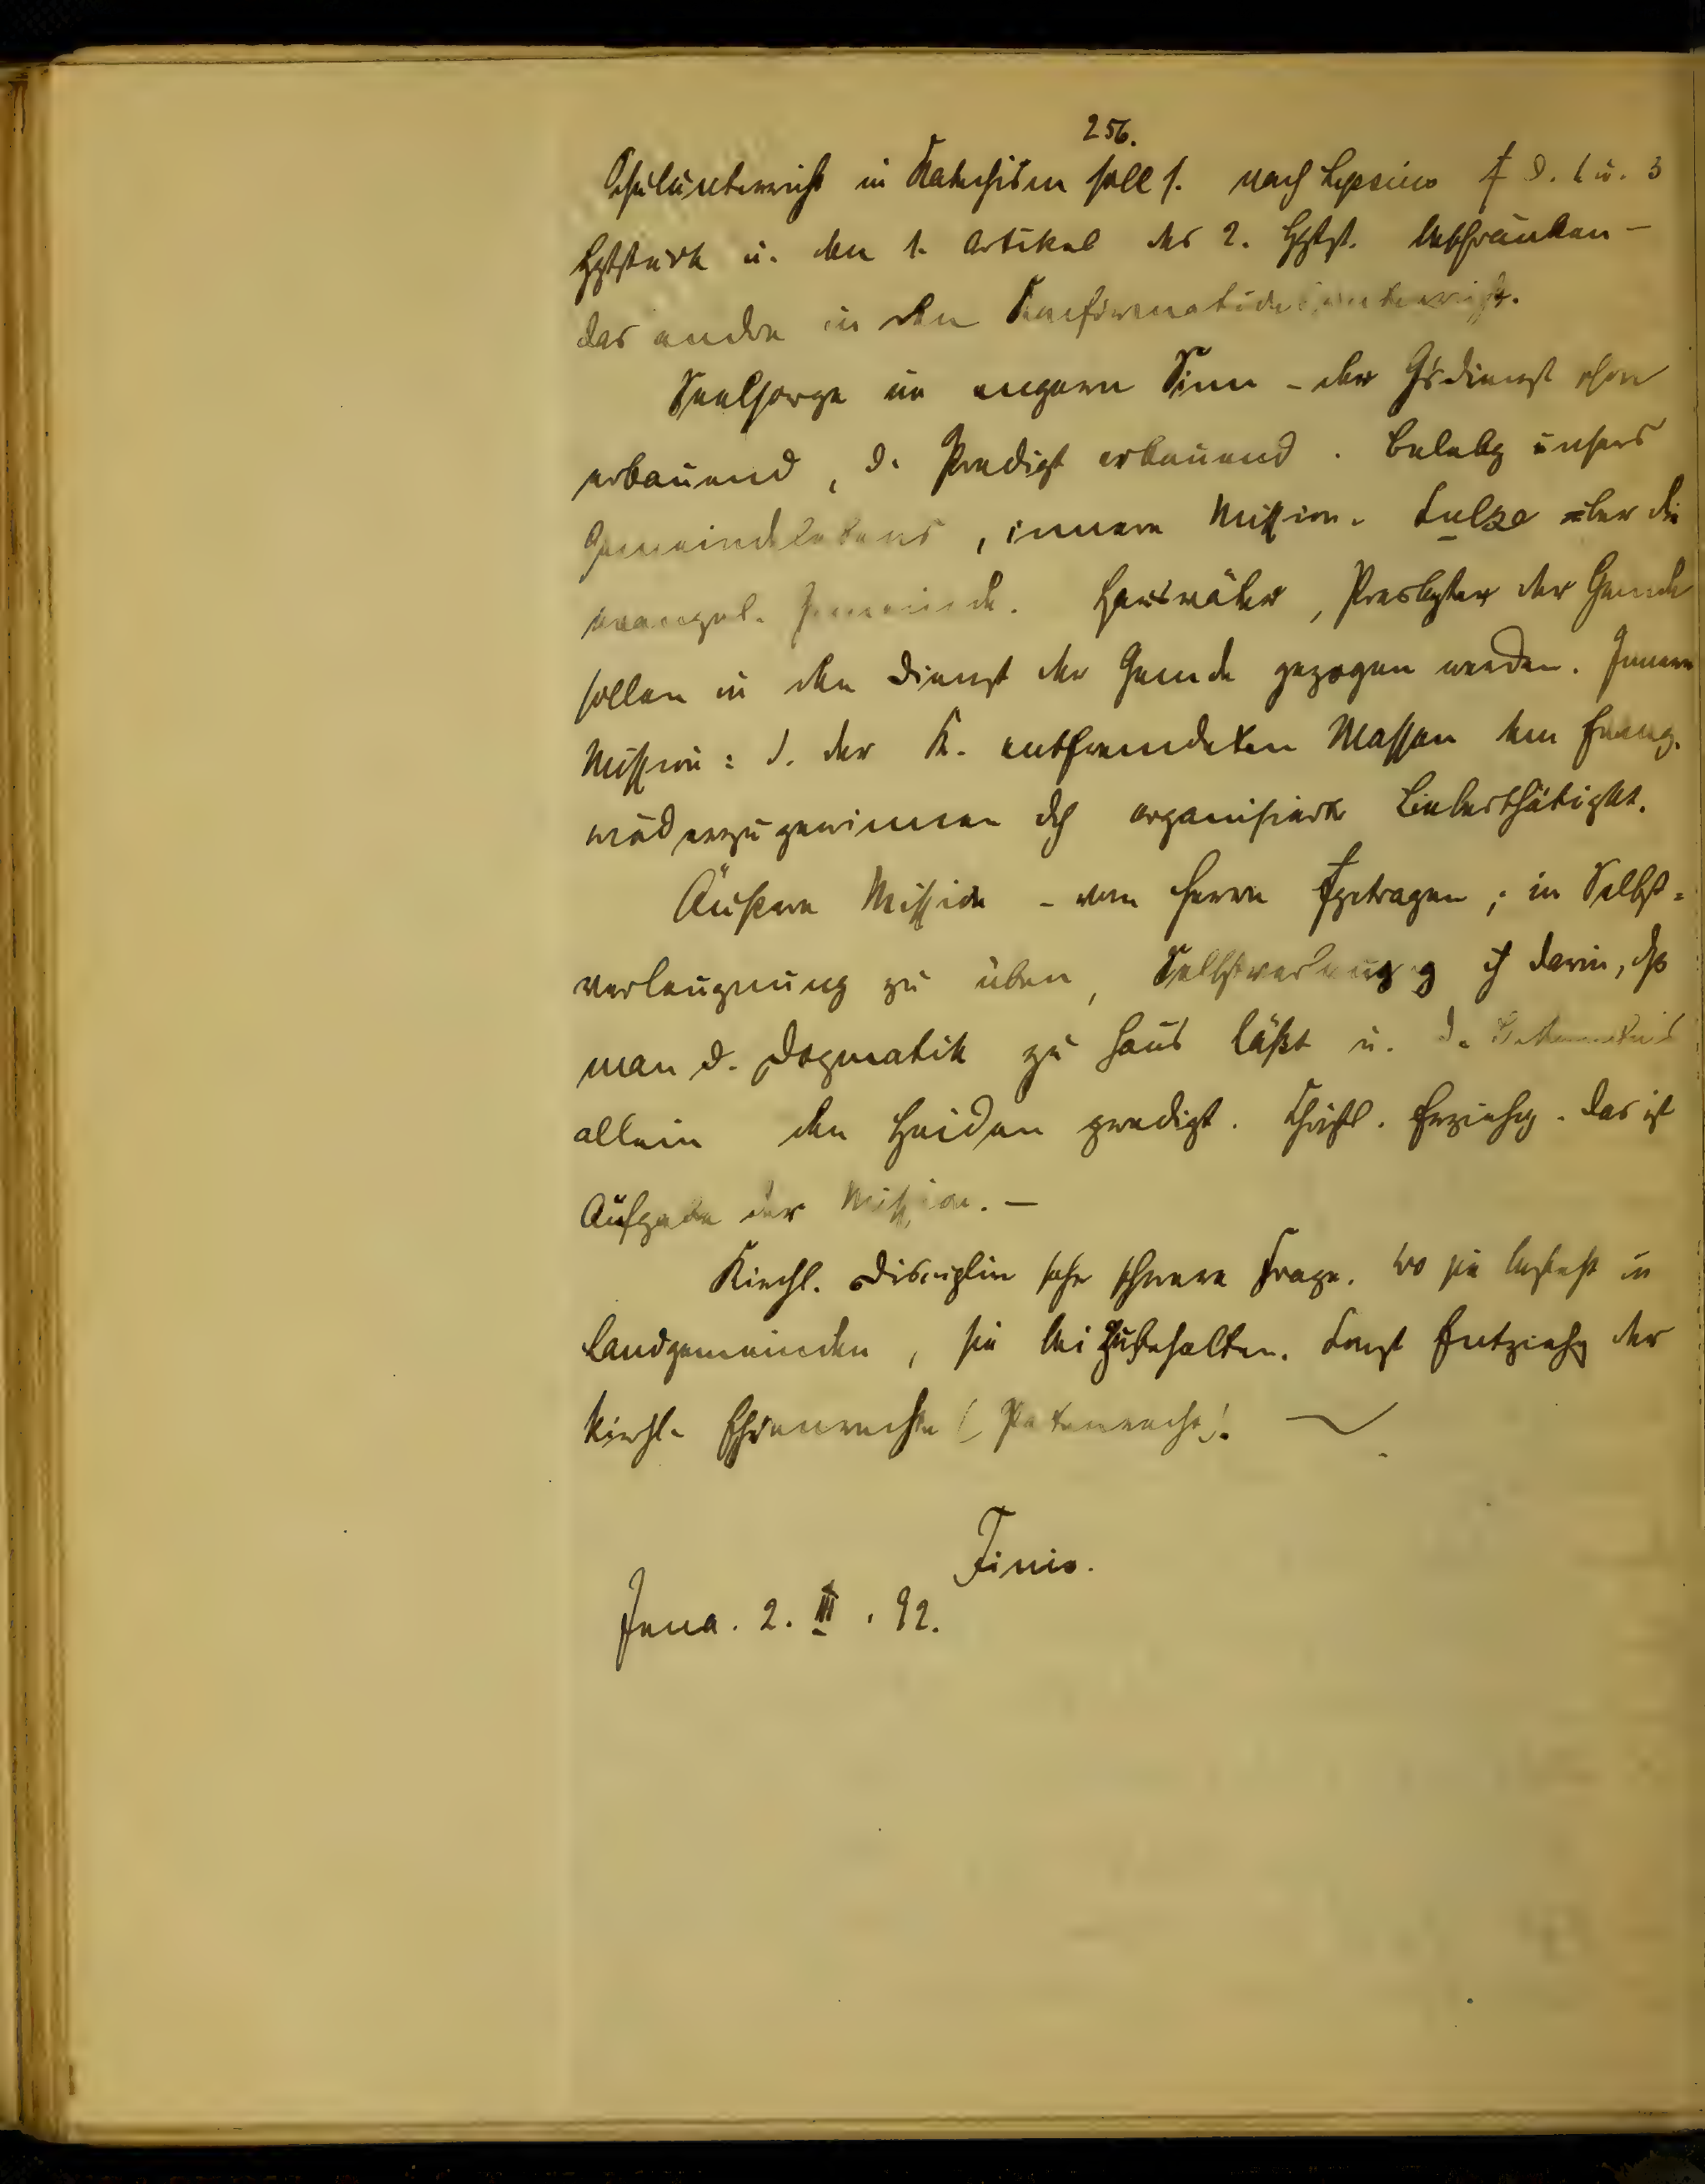 256.
Schulunterricht in Katechism soll s. nach Lipsius f d. 1 u. 3
Hptstück u. den 1. Artikel des 2. Hptst. beschränken –
das andre in den Konfirmationsunterricht.
Seelsorge im engern Sinn – der Gsdienst schon
erbauend, d. Predigt erbauend. Belebg unsers
Gemeindelebens, innere Mission. Sulze über die
evangel. Gemeinde. Hausväter, Presbyter der Gemeinde
sollen in den Dienst der Gemde gezogen werden. Innere
Mission: d. der K. entfremdeten Massen dem Evang.
wiederzugewinnen dch organisierte Liebesthätigkt.
Äußere Mission – vom Herrn aufgetragen; in Selbst=
verleugnung zu üben, Selbstverleugng ist darin, dß
man d. Dogmatik zu Haus läßt u. d.
allein den Heiden predigt. Christl. Erziehg. das ist
Aufgabe der Mission. –
Kirchl. Disciplin sehr schwere Frage. Wo sie besteht in
Landgemeinden, sie beizubehalten. Sonst Entziehg der
kirchl. Ehrenrechte (Patenrecht).
Finis.
Jena. 2. III. 92.